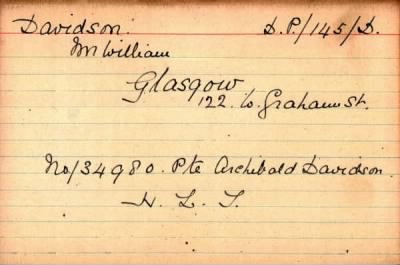 Davidson. D.P./145/D.
Mr William
Glasgow
122. W. Graham St.
No/34980. Pte Archibald Davidson.
H. L. I.